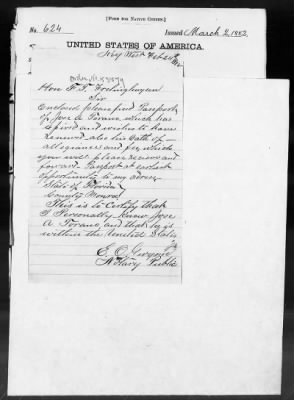 [FORM FOR NATIVE CITIZEN.]
No. 624 Issued March 2, 1882
UNITED STATES OF AMERICA.
Key West Feb
Hon F. T. Frelinghuysen
Sir
Enclosed please find Passport
of Jose A Torano, which has
Expired and wishes to have
renewed also his Oath of
allegiance and fee, which
you will please renew and
forward Passport at earliest
opportunity to my address
State of Florida
County Monroe
This is to Certify that
I Personally know Jose
A Torano, and that he is
within the United States
E. O. Gwynn
Notary Public